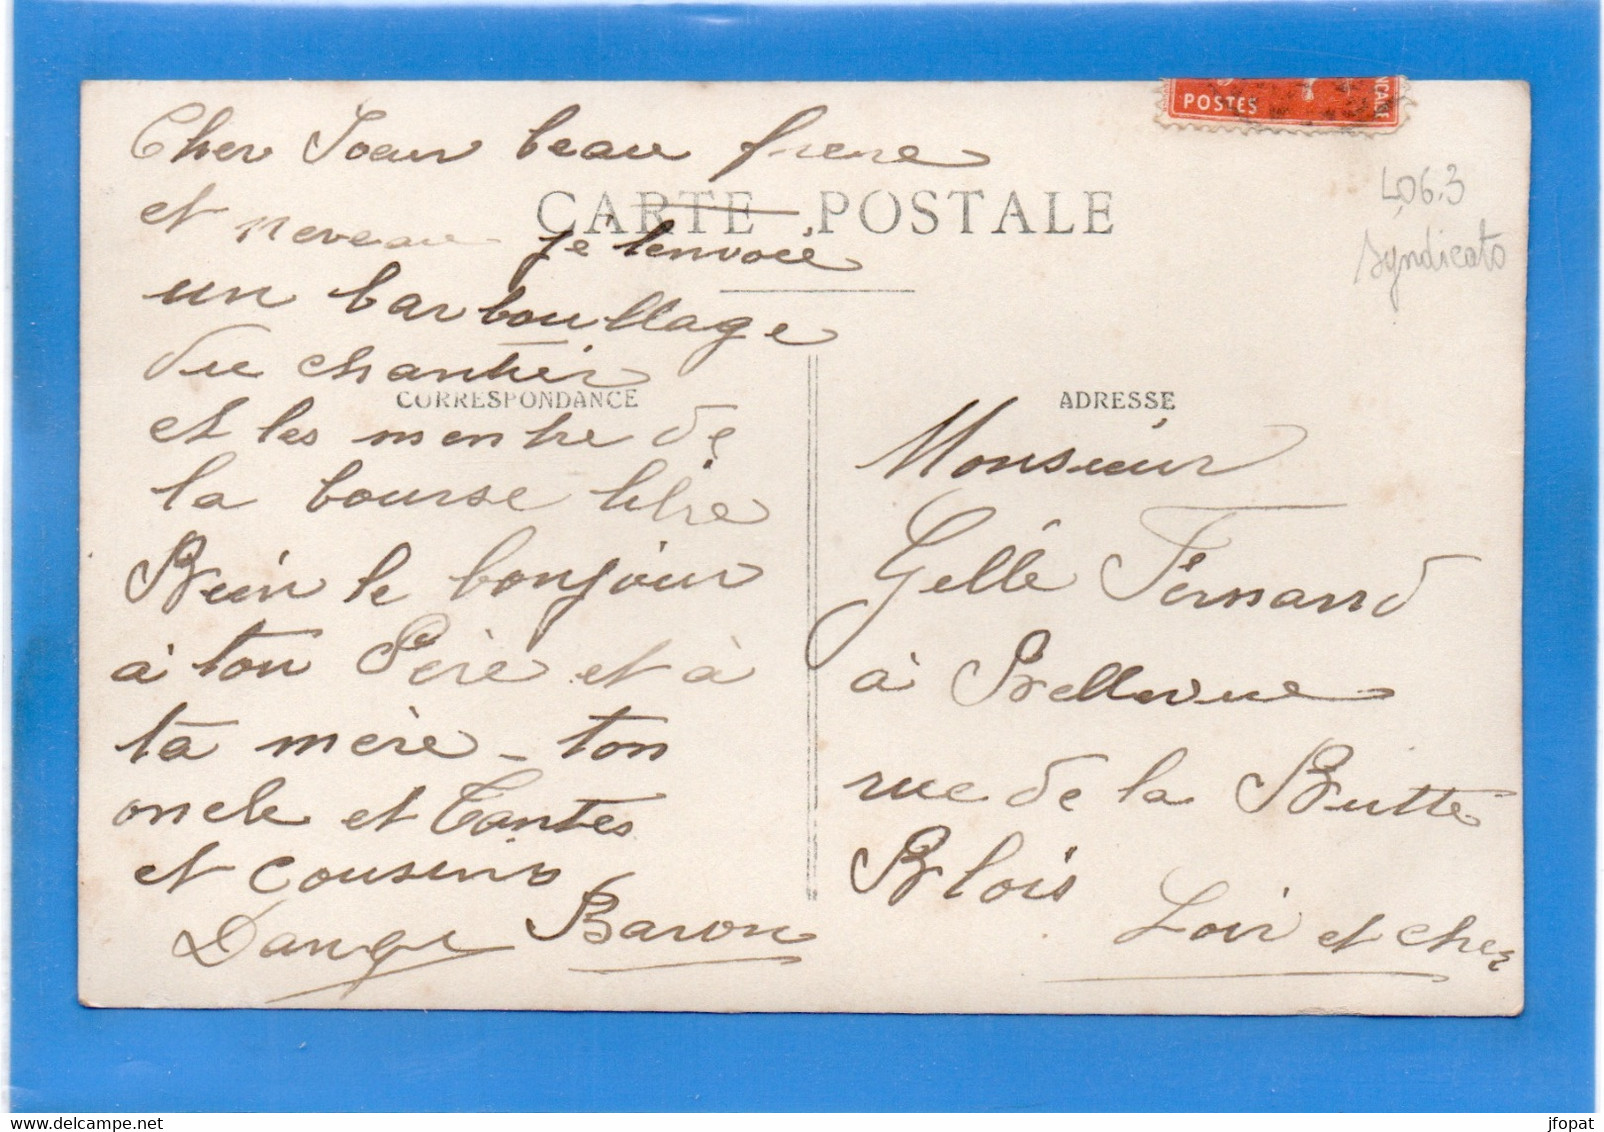 Cher Soeur beau frere
et neveau je t'envoie
un barboullage
du chantier
et les menbre de
la bourse libre
Bien le bonjour
à ton Père et à
ta mère - ton
oncle et Tantes
et cousins
Baron
CARTE POSTALE
CORRESPONDANCE
POSTES
406.3
syndicats
ADRESSE
Monsieur
Gellé Fernand
à Bellevue
rue de la Butte
Blois
Loir et cher
jfopat